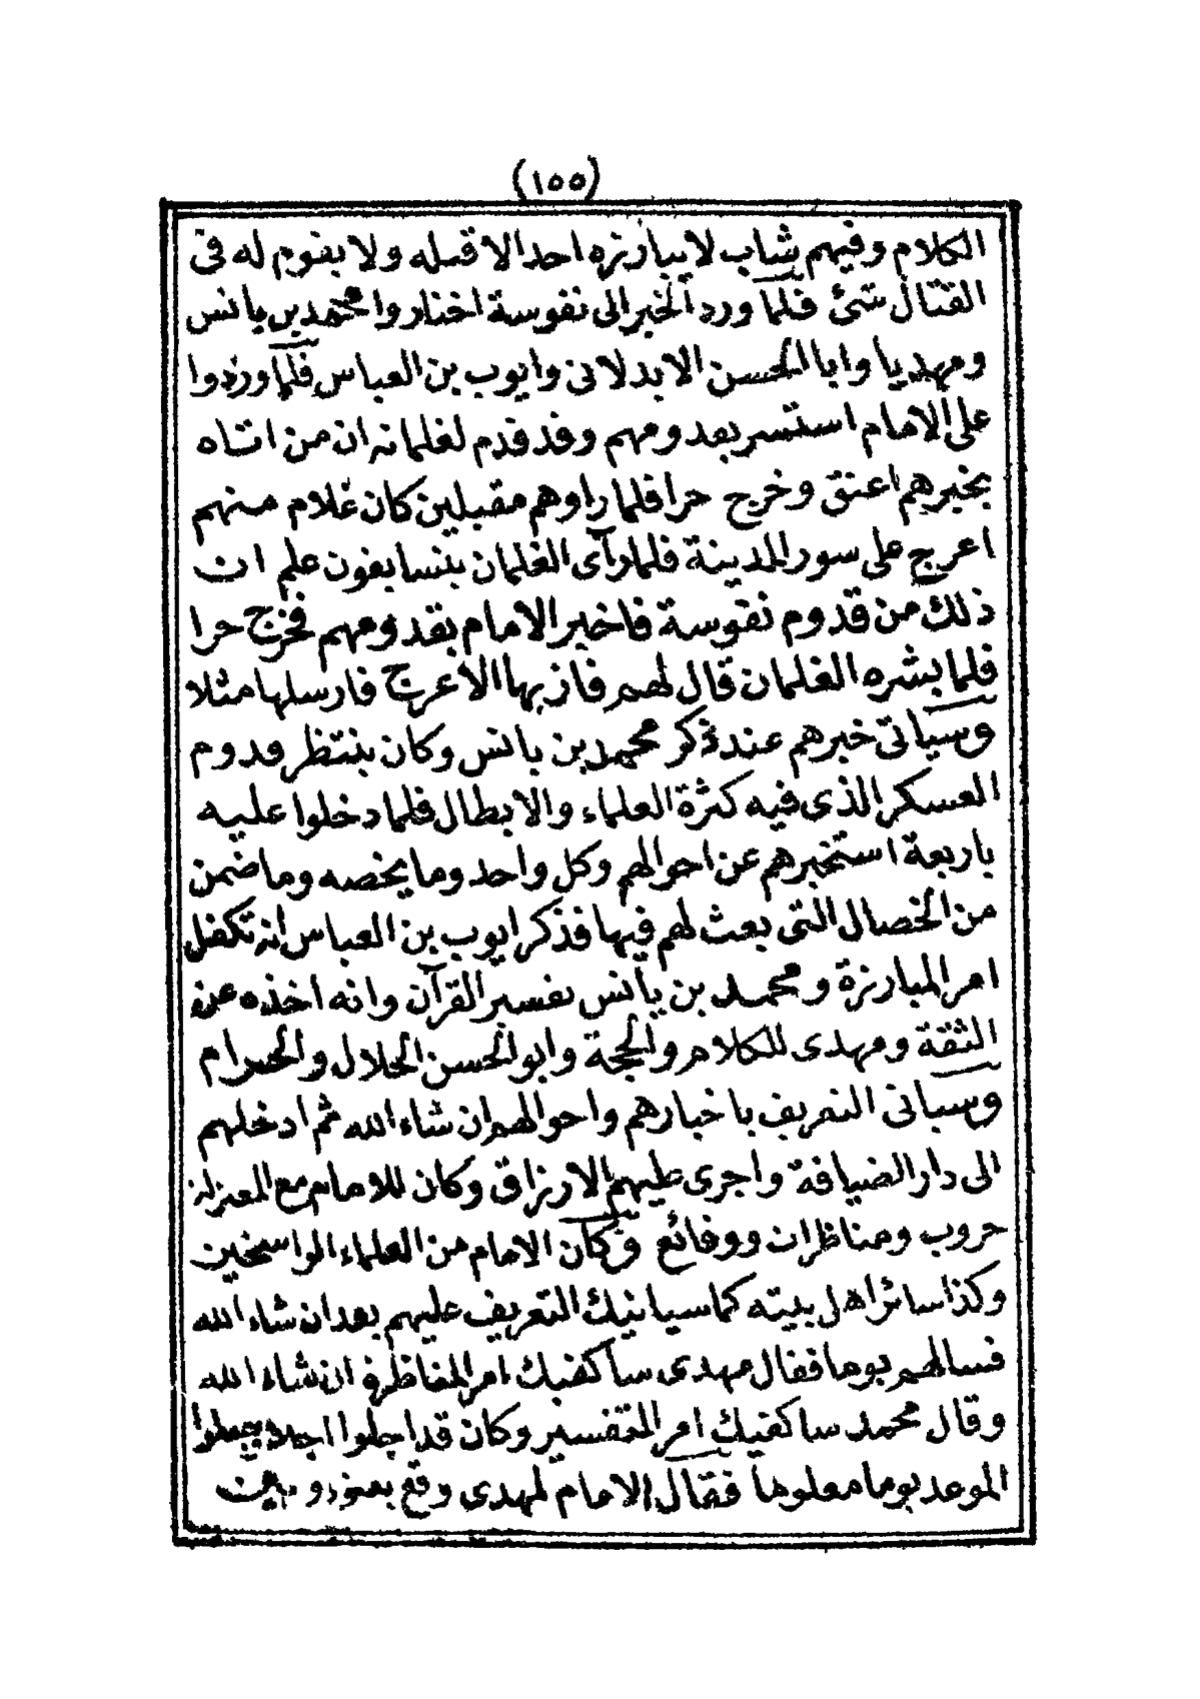 (١٥٥)
الكلام وفيهم شاب لا يبارزه احد الا قتله ولا يقوم له في
القتال شئ فلما ورد الخبر الى نفوسة اختاروا محمد بن يانس
ومهديا وابا الحسن الابدلاني وايوب بن العباس فلما وردوا
على الامام استسر بقدومهم وقد قدم لغلمانه ان من اتاه
بخبرهم اعتق وخرج حرا فلما راوهم مقبلين كان غلام منهم
اعرج على سور المدينة فلما رآى الغلمان يتسابقون علم ان
ذلك من قدوم نفوسة فاخبر الامام بقدومهم فخرج حرا
فلما بشره الغلمان قال لهم فاز بها الاعرج فارسلها مثلا
وسياتى خبرهم عند ذكر محمد بن يانس وكان ينتظر قدوم
العسكر الذى فيه كثرة العلماء والابطال فلما دخلوا عليه
باربعة استخبرهم عن احوالهم وكل واحد وما يخصه وما ضمن
من الخصال التى بعث لهم فيها فذكر ايوب بن العباس انه تكفل
امر المبارزة ومحمد بن يانس تفسير القرآن وانه اخذه عن
الثقة ومهدى للكلام والحجة وابو الحسن الحلال والحرام
وسياتى التعريف باخبارهم واحوالهم ان شاء الله ثم ادخلهم
الى دار الضيافة واجرى عليهم الارزاق وكان للامام مع المعتزلة
حروب ومناظرات ووقائع وكان الامام من العلماء الراسخين
وكذا سائر اهل بيته كما سياتيك التعريف عليهم بعد ان شاء الله
فسالهم يوما فقال مهدى ساكفيك امر المناظرة ان شاء الله
وقال محمد ساكفيك امر التفسير وكان قد اجلوا اجلا يجعلوا
الموعد يوما معلوما فقال الامام لمهدى وقع بعض وبين